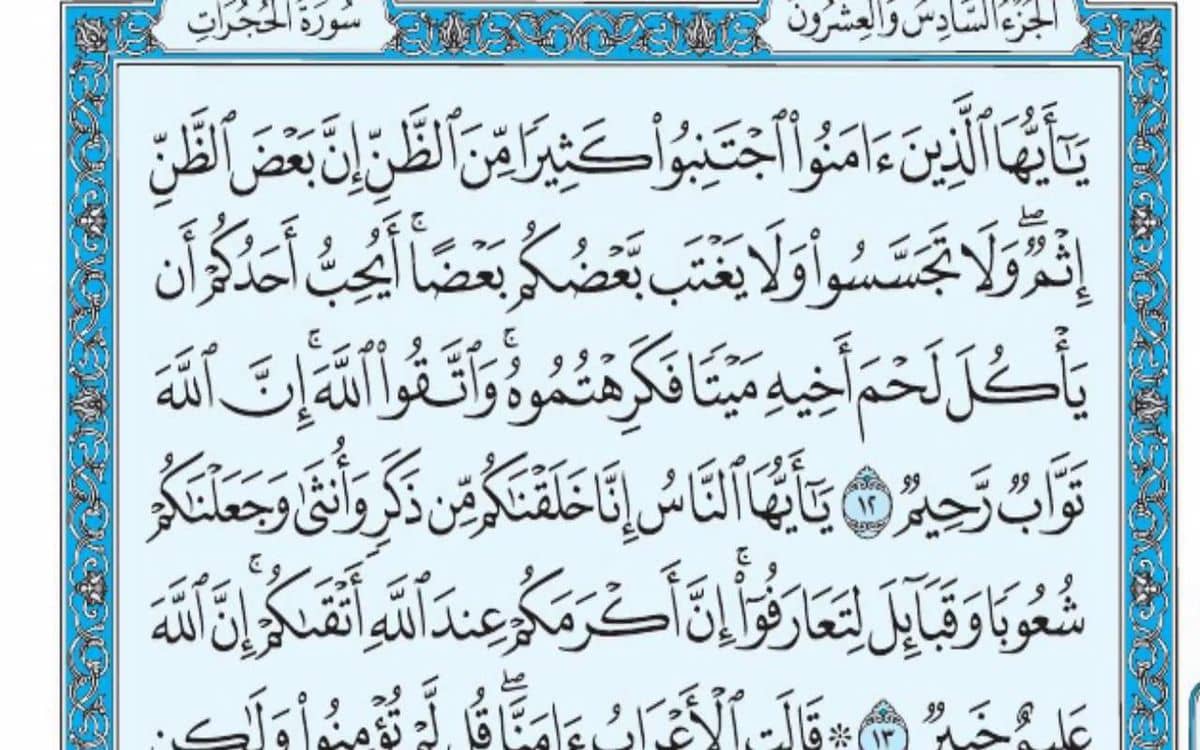 الجزء السادس والعشرون
سورة الحجرات
يَـٰٓأَيُّهَا ٱلَّذِينَ ءَامَنُوا۟ ٱجْتَنِبُوا۟ كَثِيرًا مِّنَ ٱلظَّنِّ إِنَّ بَعْضَ ٱلظَّنِّ
إِثْمٌ ۖ وَلَا تَجَسَّسُوا۟ وَلَا يَغْتَب بَّعْضُكُم بَعْضًا ۚ أَيُحِبُّ أَحَدُكُمْ أَن
يَأْكُلَ لَحْمَ أَخِيهِ مَيْتًا فَكَرِهْتُمُوهُ ۚ وَٱتَّقُوا۟ ٱللَّهَ ۚ إِنَّ ٱللَّهَ
تَوَّابٌ رَّحِيمٌ ١٢ يَـٰٓأَيُّهَا ٱلنَّاسُ إِنَّا خَلَقْنَـٰكُم مِّن ذَكَرٍ وَأُنثَىٰ وَجَعَلْنَـٰكُمْ
شُعُوبًا وَقَبَآئِلَ لِتَعَارَفُوٓا۟ ۚ إِنَّ أَكْرَمَكُمْ عِندَ ٱللَّهِ أَتْقَىٰكُمْ ۚ إِنَّ ٱللَّهَ
عَلِيمٌ خَبِيرٌ ١٣ ۞ قَالَتِ ٱلْأَعْرَابُ ءَامَنَّا ۖ قُل لَّمْ تُؤْمِنُوا۟ وَلَـٰكِن